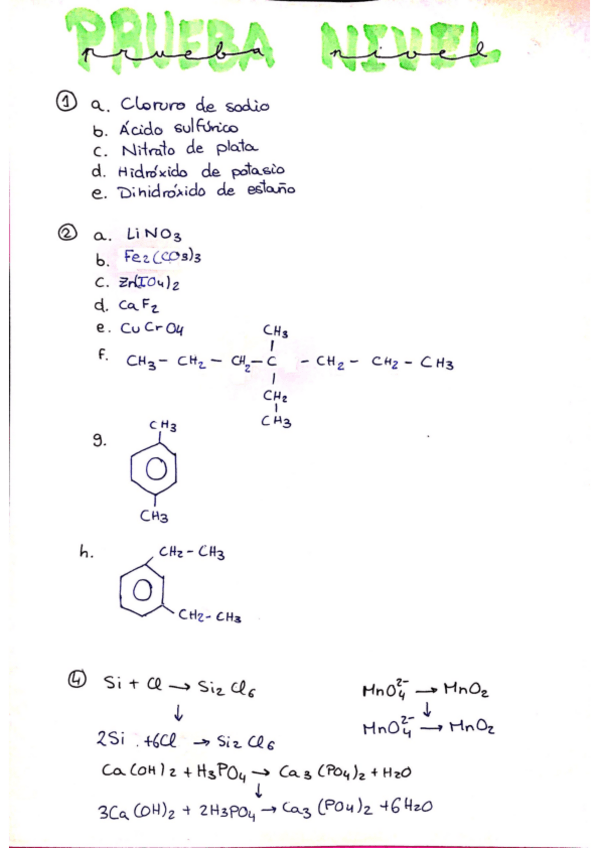 PRUEBA NIVEL
prueba nivel
① a. Cloruro de sodio
b. Ácido sulfúrico
c. Nitrato de plata
d. Hidróxido de potasio
e. Dihidróxido de estaño
② a. LiNO3
b. Fe2(CO3)3
c. Zr(IO4)2
d. CaF2
e. CuCrO4
f. CH3
CH3 - CH2 - CH2 - C - CH2 - CH2 - CH3
CH2
CH3
g. CH3
CH3
h. CH2 - CH3
CH2 - CH3
④ Si + Cl → Si2Cl6
↓
2Si + 6Cl → Si2Cl6
MnO4 2- → MnO2
↓
MnO4 2- → MnO2
Ca(OH)2 + H3PO4 → Ca3(PO4)2 + H2O
↓
3Ca(OH)2 + 2H3PO4 → Ca3(PO4)2 + 6H2O